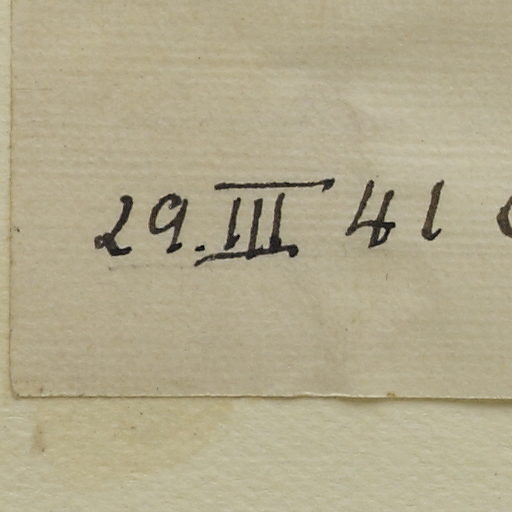 29. III 41